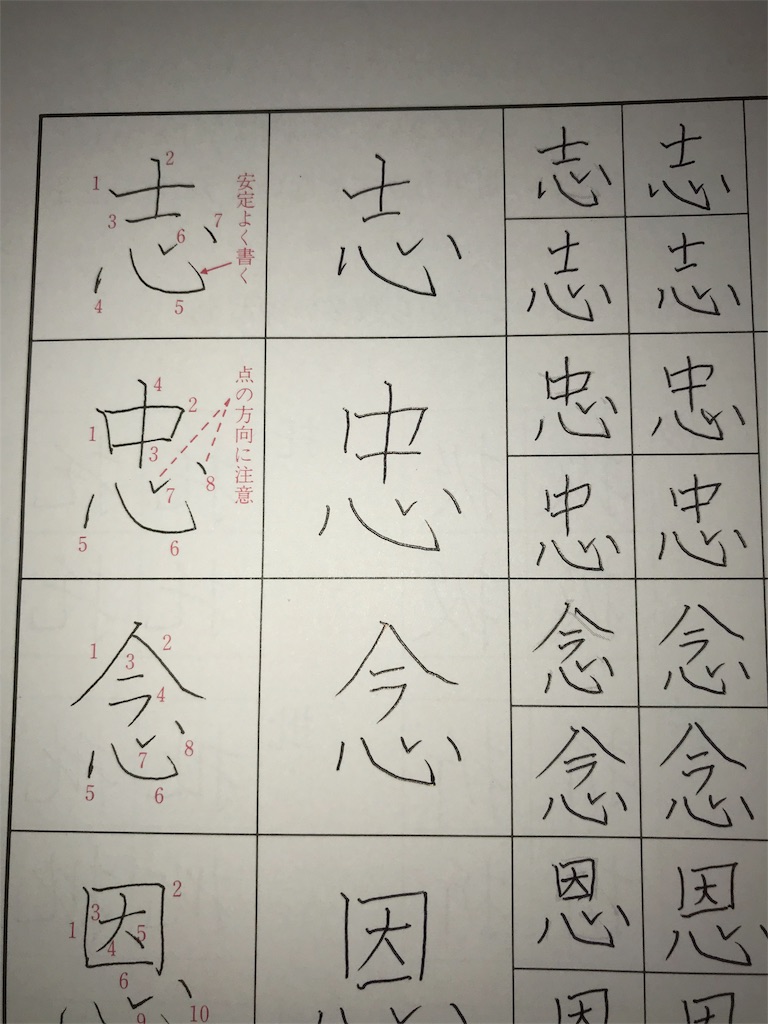 志 志 志 志
安定よく書く
志 志
1 2 3 4 5 6 7
忠 忠 忠 忠
点の方向に注意
忠 忠
1 2 3 4 5 6 7 8
念 念 念 念
念 念
1 2 3 4 5 6 7 8
恩 恩 恩 恩
恩 恩
1 2 3 4 5 6 9 10